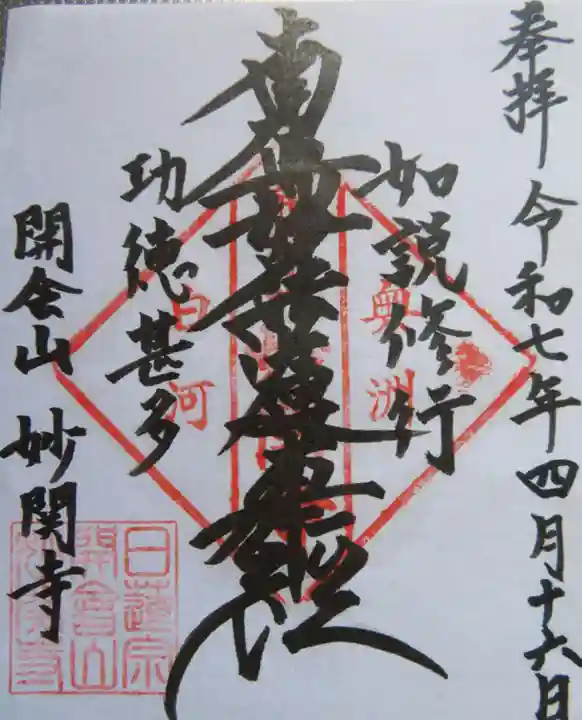 奉拝 令和七年四月十六日
如説修行
南無妙法蓮華経
功徳甚多
開会山 妙関寺
奥洲
白河
日蓮宗
開會山